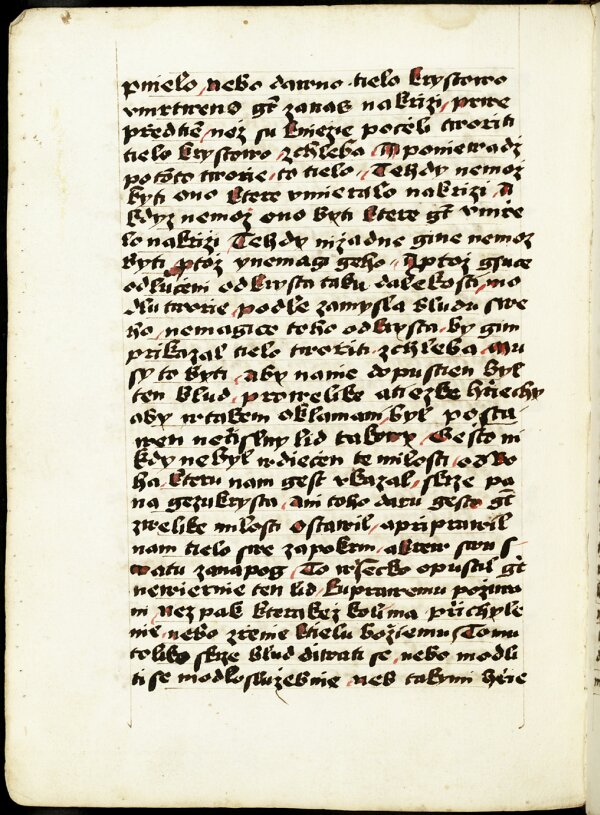 pmelo, nebo dawno tielo krystowo
vmrtweno gt zanas nakrizi, prwe
predtie, nez su kniezie poceli tworiti
tielo krystowo, zchleba A poniewadz
pototo tworie, to tielo, Tehdy nemoz
byti ono ktere vmieralo nakrizi, A
kdyz nemoz ono byti ktere gt vmre
lo nakrizi Tehdy nizadne gine nemoz
byti, ptoz ynemagi geho, A ptoz gsuce
odluceni odkrysta taku dalekosti, mo
dlu tworie, podle zamysla bludu swe
ho, nemagice toho odkrysta, by gim
prikazal tielo tworiti, zchleba, Mu
sy to byti, aby nanie dopustien byl
ten blud, prowelike atiezke hriechy
aby wtakem oklamani byl posta
wen necislny lid takowy, Gesto ni
kdy nebyl wdiecen te milosti, odbo
ha, kteru nam gest vkazal, skrze pa
na gezukrysta, Ani toho daru gesto gt
zwelike milosti ostawil, apriprawil
nam tielo swe zapokrm, akrew swu s
watu zanapog, To wsecko opustil gt
newiernie ten lid, kuprawemu poziwa
ni, Nez pak kterakez kolima prichyle
nie, nebo zrenie ktielu boziemu, Tomu
toliko skrze blud diwati se, nebo modli
ti se modlosluzebnie, neb takymi hrie